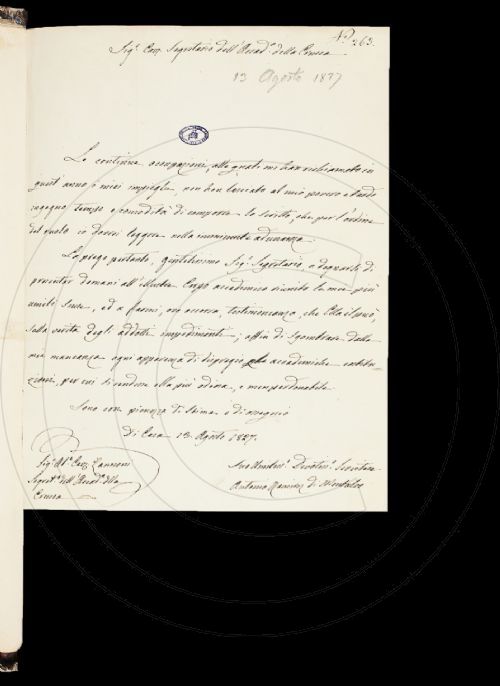 N.º 263.
Sig.r Cav. Segretario dell'Accad.a della Crusca
13 Agosto 1827
Le continue occupazioni, alle quali mi han richiamato in
quest'anno i miei impieghi, non han lasciato al mio povero e tardo
ingegno tempo e comodità di comporre lo scritto, che per l'ordine
del ruolo io dovrei leggere nella imminente adunanza.
La prego pertanto, gentilissimo Sig.r Segretario, a degnarsi di
presentar domani all'Illustre Corpo accademico riunito le mie più
umili scuse, ed a farmi, ove occorra, testimonianza, che Ella il può,
della verità degli addotti impedimenti; affin di sgombrare dalla
mia mancanza ogni apparenza di dispregio alle accademiche costitu-
zioni, per cui si rendesse ella più odiosa, e men perdonabile.
Sono con pienezza di stima e di ossequio
Di Casa 13. Agosto 1827.
Sig.r Ab.e Cav. Zannoni
Segret.o dell'Accad.a della
Crusca
Suo Umiliss.o Devotiss.o Servitore
Antonio